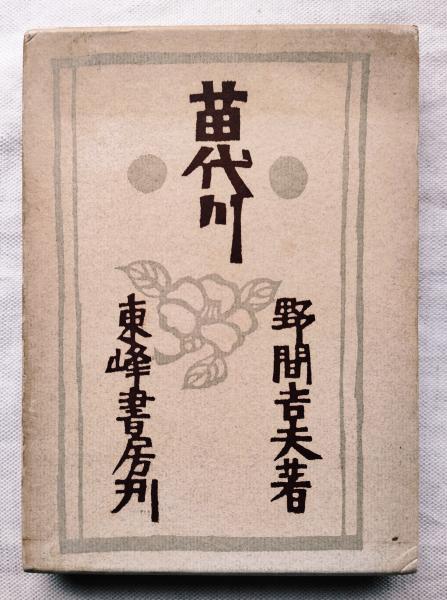 苗代川
野間吉夫著
東峰書房刊